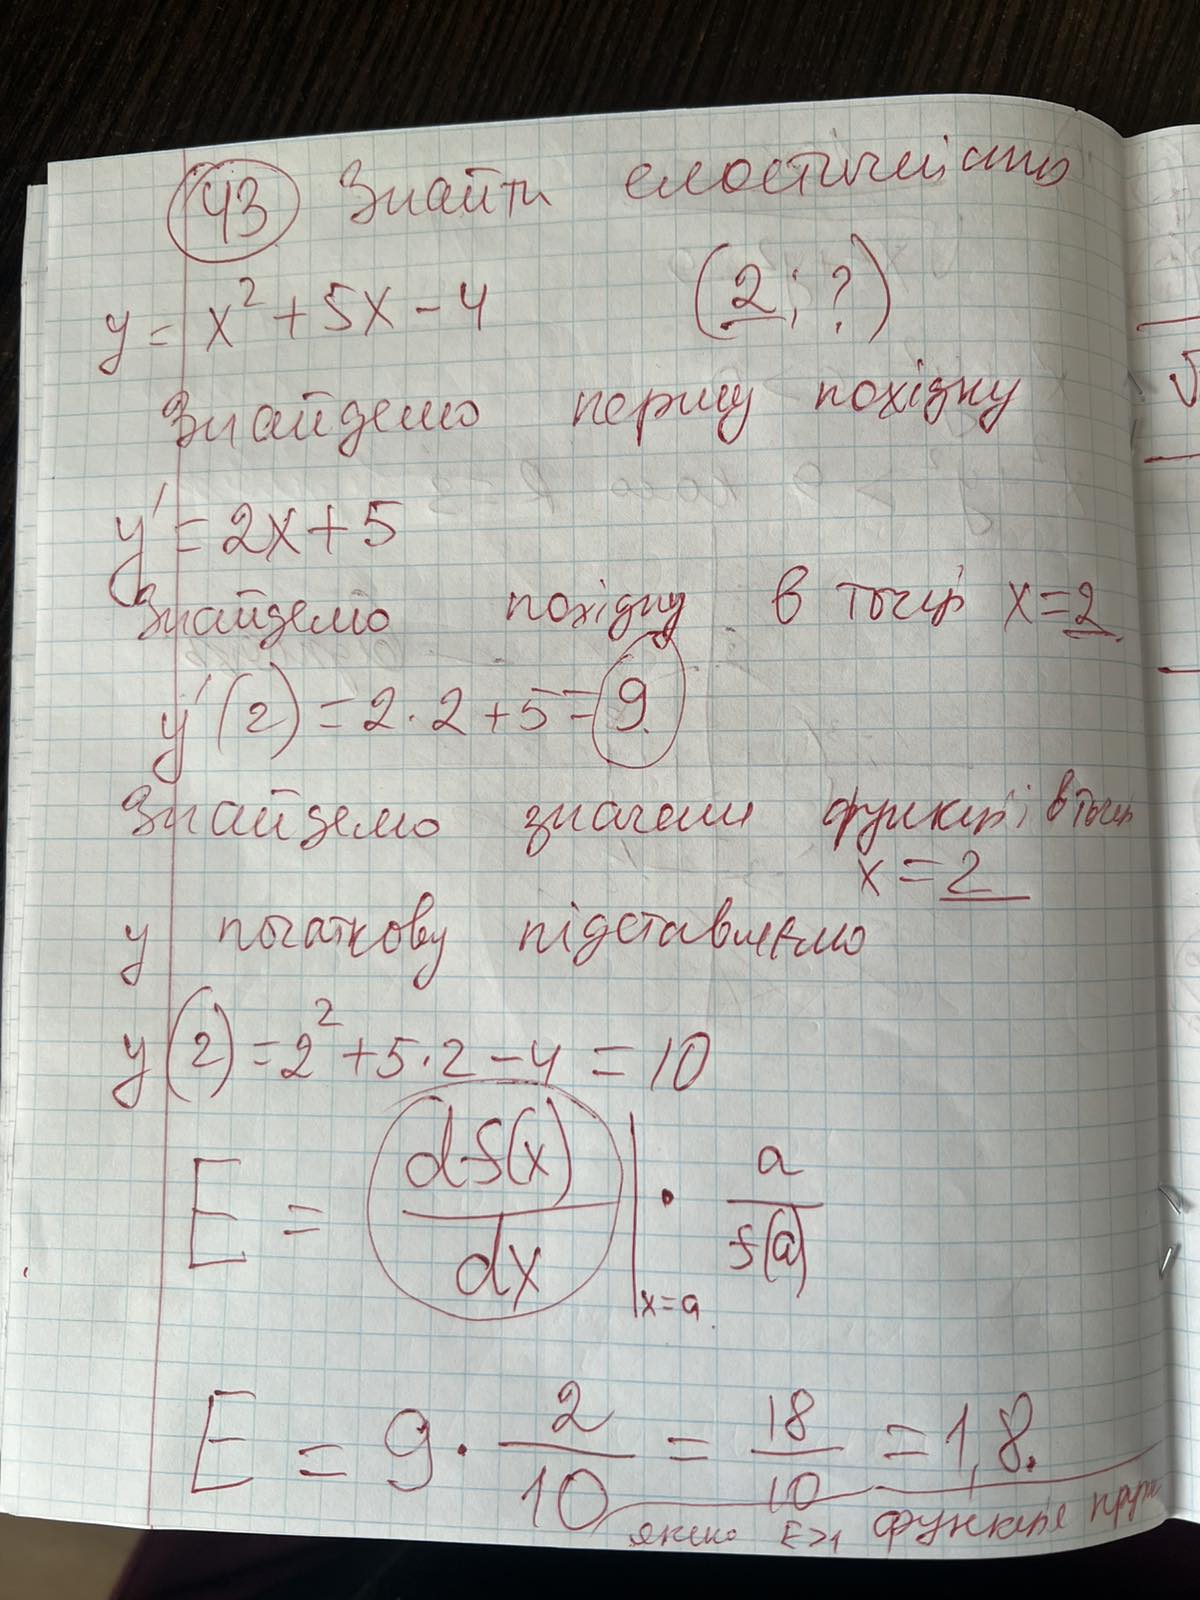 43 Знайти еластичність
y = x² + 5x - 4 (2; ?)
Знайдемо першу похідну
y' = 2x + 5
Знайдемо похідну в точці x = 2
y'(2) = 2 · 2 + 5 = 9
Знайдемо значення функції в точці
x = 2
у початкову підставляємо
y(2) = 2² + 5 · 2 - 4 = 10
E = df(x)/dx |x=a · a/f(a)
E = 9 · 2/10 = 18/10 = 1,8.
якщо E>1 функція